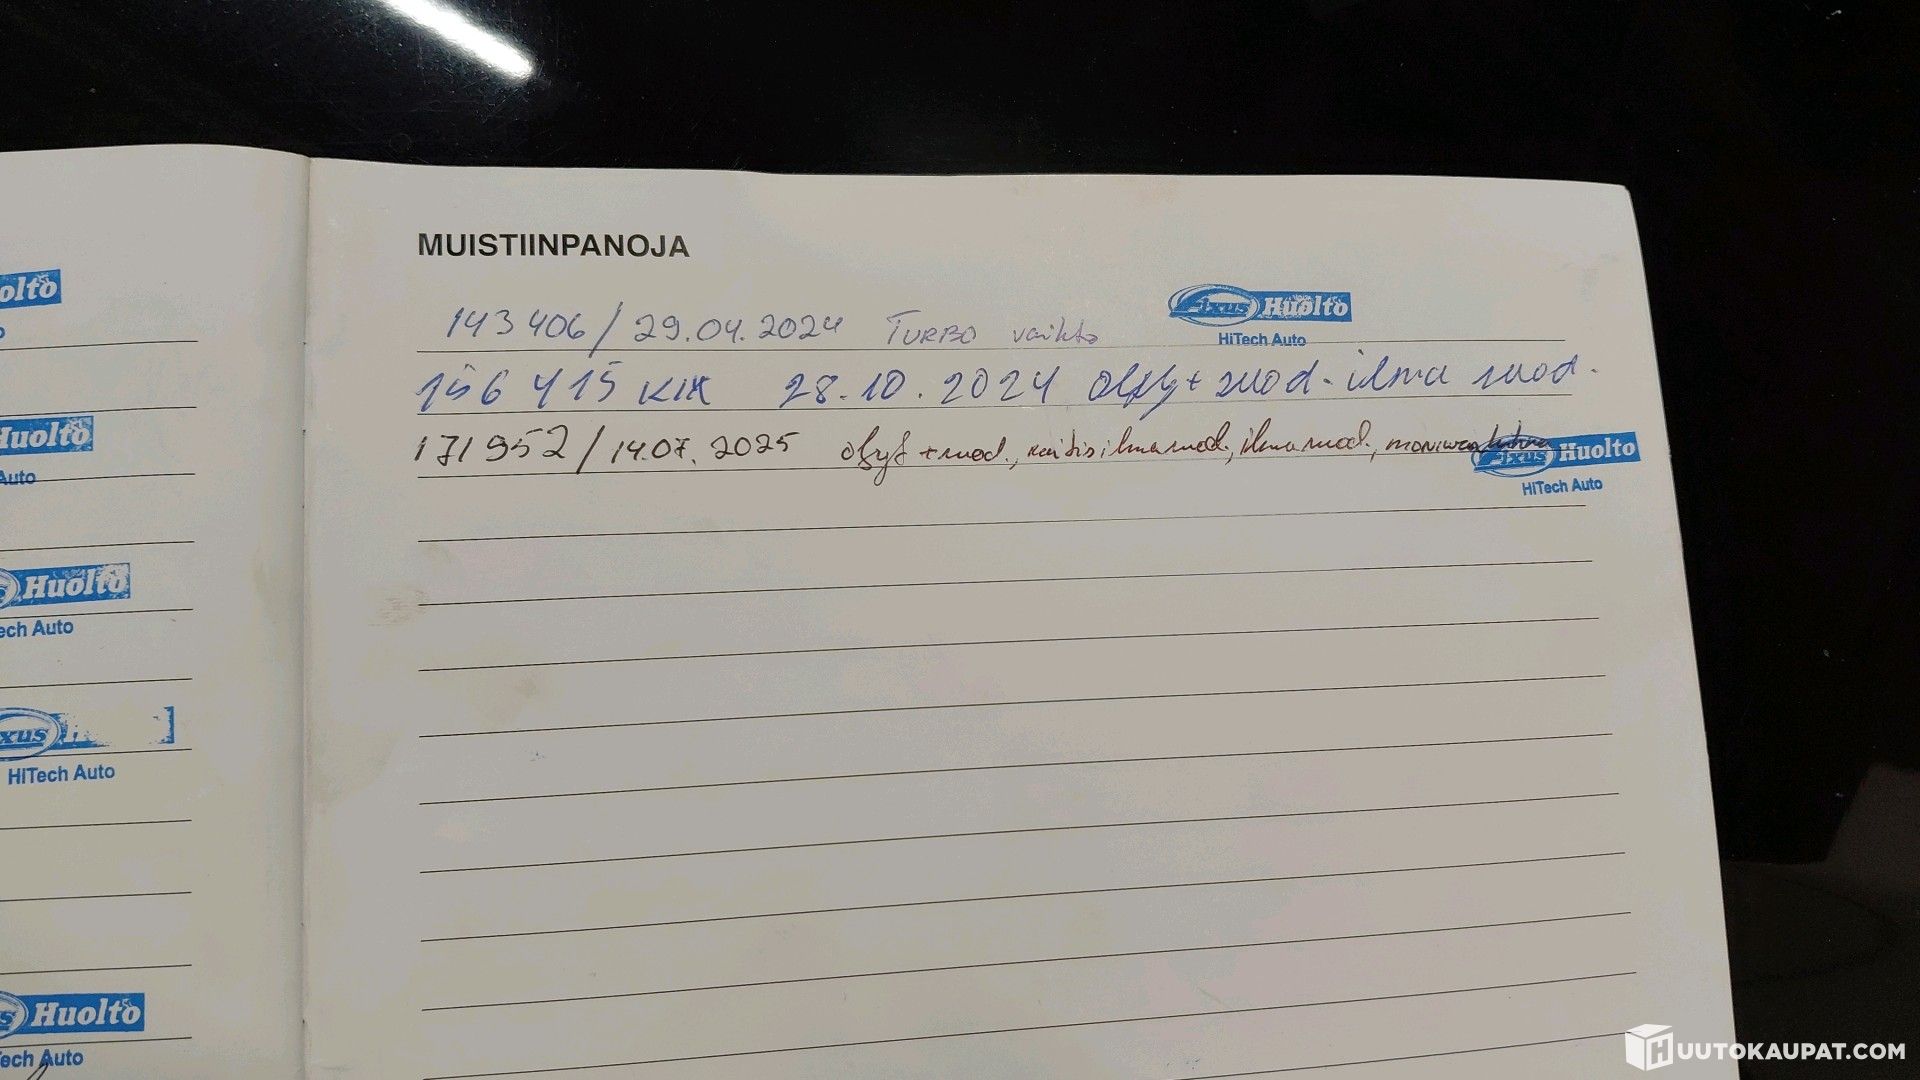 MUISTIINPANOJA
143 406 / 29.04.2024 TURBO vaihto
Fixus Huolto
HiTech Auto
156 415 KM 28.10.2024 öljyt + suod. ilma suod.
171952 / 14.07.2025 öljyt + suod., raitisilmasuod., ilmasuod., moniura
Fixus Huolto
HiTech Auto
olto
o
Huolto
Auto
Huolto
ech Auto
xus
HiTech Auto
s Huolto
ech Auto
HUUTOKAUPAT.COM